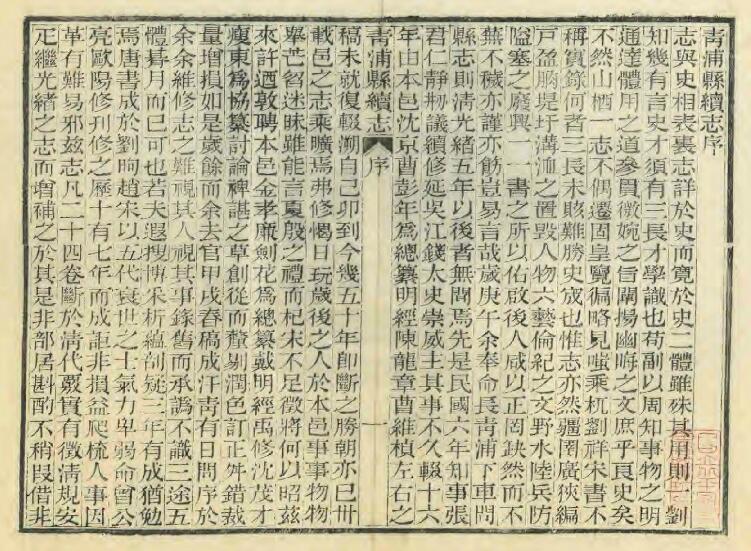 青浦縣續志序
志與史相表裏志詳於史而寬於史二體雖殊其用則一劉
知幾有言史才須有三長才學識也苟副以周知事物之明
通達體用之道參貫微婉之旨闡揚幽晦之文庶乎頁史矣
不然山栖一志不偶遷固皇覽徧略見嗤乘杌劉祥朱書不
稱實錄何者三長未賅難勝史宬也惟志亦然疆圉廣狹編
戶盈朒堤圩溝洫之置毀人物六藝倫紀之文野水陸兵防
隘塞之廢興一一書之所以佑啟後人咸以正罔缺然而不
蕪不穢亦謹亦飭豈易言哉歲庚午余奉命長青浦下車問
縣志則淸光緒五年以後者無聞焉先是民國六年知事張
君仁靜剏議續修延吳江錢太史崇威主其事不久輟十六
年由本邑沈京曹彭年爲總纂明經陳龍章曹維楨左右之
青浦縣續志 序 一
稿未就復輟溯自己卯到今幾五十年卽斷之勝朝亦已卅
載邑之志乘曠焉弗修愒日玩歲後之人於本邑事事物物
舉芒昝迷昧雖能言夏殷之禮而杞宋不足徵將何以昭茲
來許迺敦聘本邑金孝廉劍花爲總纂戴明經禹修沈茂才
瘦東爲協纂討論裨諶之草創從而釐剔潤色訂正舛錯裁
量增損如是歲餘而余去官甲戌春稿成汗靑有日問序於
余余維修志之難視其人視其事錄舊而承譌不識三途五
體朞月而已可也若夫遐搜博采析纑剖疑三年有成猶勉
焉唐書成於劉昫趙宋以五代衰世之士氣力卑弱命曾公
亮歐陽修刋修之歷十有七年而成詎非損益爬梳人事因
革有難易邪茲志凡二十四卷斷於淸代覈實有徵淸規安
定繼光緒之志而增補之於其是非部居斟酌不稍叚借非